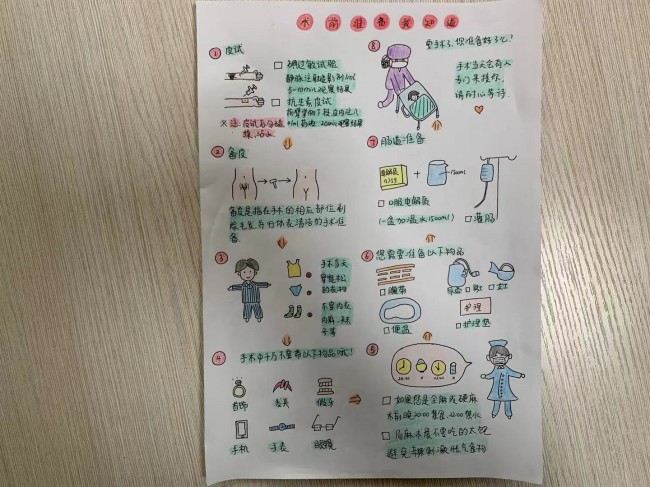 术前准备我知道
① 皮试
□ 碘过敏试验
静脉注射造影剂1ml
5-10min观察结果
□ 抗生素皮试
② 备皮
备皮是指在手术的相应部位剃
除毛发并行体表清洁的手术准
备
③
手术当天
穿宽松
的衣物
不要内衣
内裤、袜
子等
④ 手术中千万不要带以下物品哦!
首饰
发夹
假牙
手机
手表
眼镜
⑧ 要手术了,你准备好了么?
手术当天会有人
专门来接你,
请耐心等待
⑦ 肠道准备
1500ml
□ 口服电解质
(一盒加温水1500ml)
□ 灌肠
⑥ 您需要准备以下物品
□ 腹带
□ 便盆
护理
□ 护理垫
⑤
□ 如果您是全麻或硬麻
术前晚20:00禁食,22:00禁水
□ 局麻术晨不要吃的太饱
避免辛辣刺激胀气食物